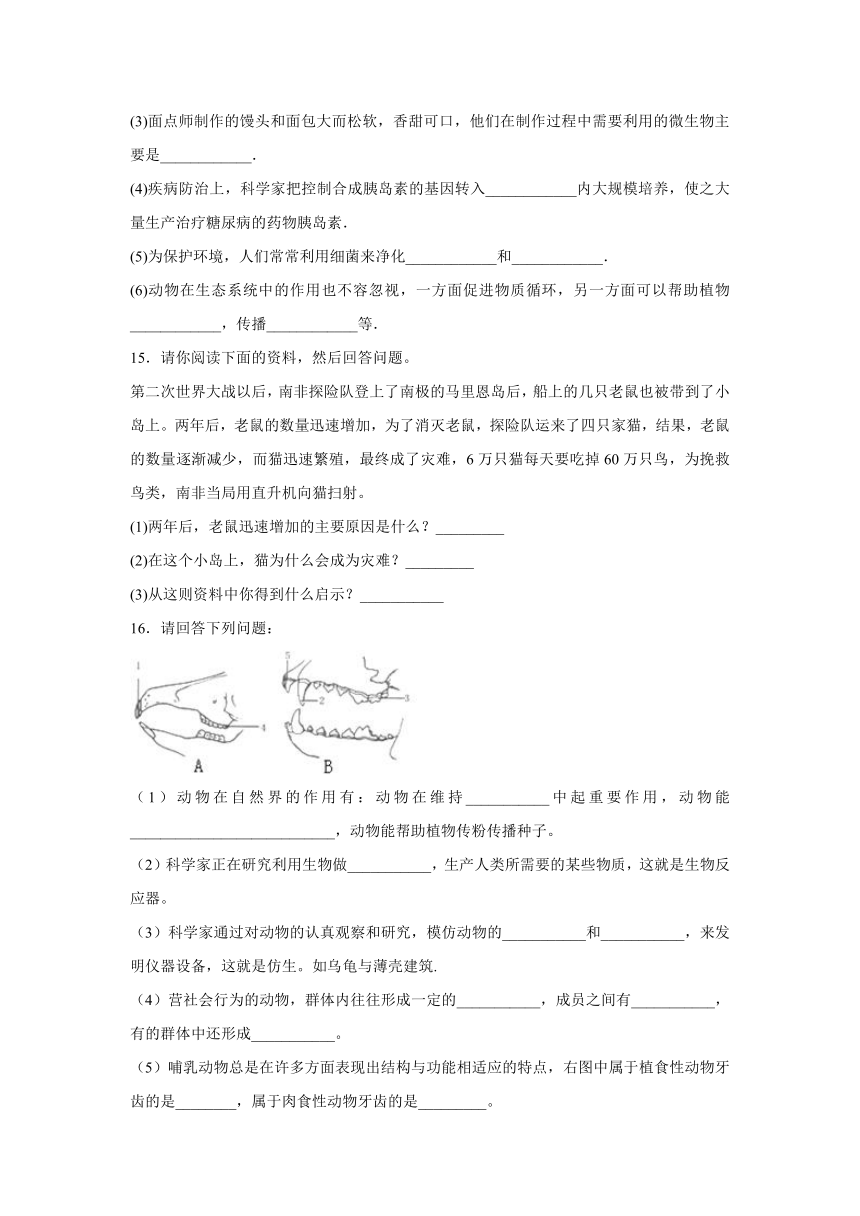 (3)面点师制作的馒头和面包大而松软，香甜可口，他们在制作过程中需要利用的微生物主
要是____________．
(4)疾病防治上，科学家把控制合成胰岛素的基因转入____________内大规模培养，使之大
量生产治疗糖尿病的药物胰岛素．
(5)为保护环境，人们常常利用细菌来净化____________和____________．
(6)动物在生态系统中的作用也不容忽视，一方面促进物质循环，另一方面可以帮助植物
____________，传播____________等．
15．请你阅读下面的资料，然后回答问题。
第二次世界大战以后，南非探险队登上了南极的马里恩岛后，船上的几只老鼠也被带到了小
岛上。两年后，老鼠的数量迅速增加，为了消灭老鼠，探险队运来了四只家猫，结果，老鼠
的数量逐渐减少，而猫迅速繁殖，最终成了灾难，6 万只猫每天要吃掉 60 万只鸟，为挽救
鸟类，南非当局用直升机向猫扫射。
(1)两年后，老鼠迅速增加的主要原因是什么？_________
(2)在这个小岛上，猫为什么会成为灾难？_________
(3)从这则资料中你得到什么启示？___________
16．请回答下列问题：
1
4
A
5
2
3
B
（1）动物在自然界的作用有：动物在维持___________中起重要作用，动物能
___________________________，动物能帮助植物传粉传播种子。
（2）科学家正在研究利用生物做___________，生产人类所需要的某些物质，这就是生物反
应器。
（3）科学家通过对动物的认真观察和研究，模仿动物的___________和___________，来发
明仪器设备，这就是仿生。如乌龟与薄壳建筑.
（4）营社会行为的动物，群体内往往形成一定的___________，成员之间有___________，
有的群体中还形成___________。
（5）哺乳动物总是在许多方面表现出结构与功能相适应的特点，右图中属于植食性动物牙
齿的是________，属于肉食性动物牙齿的是_________。